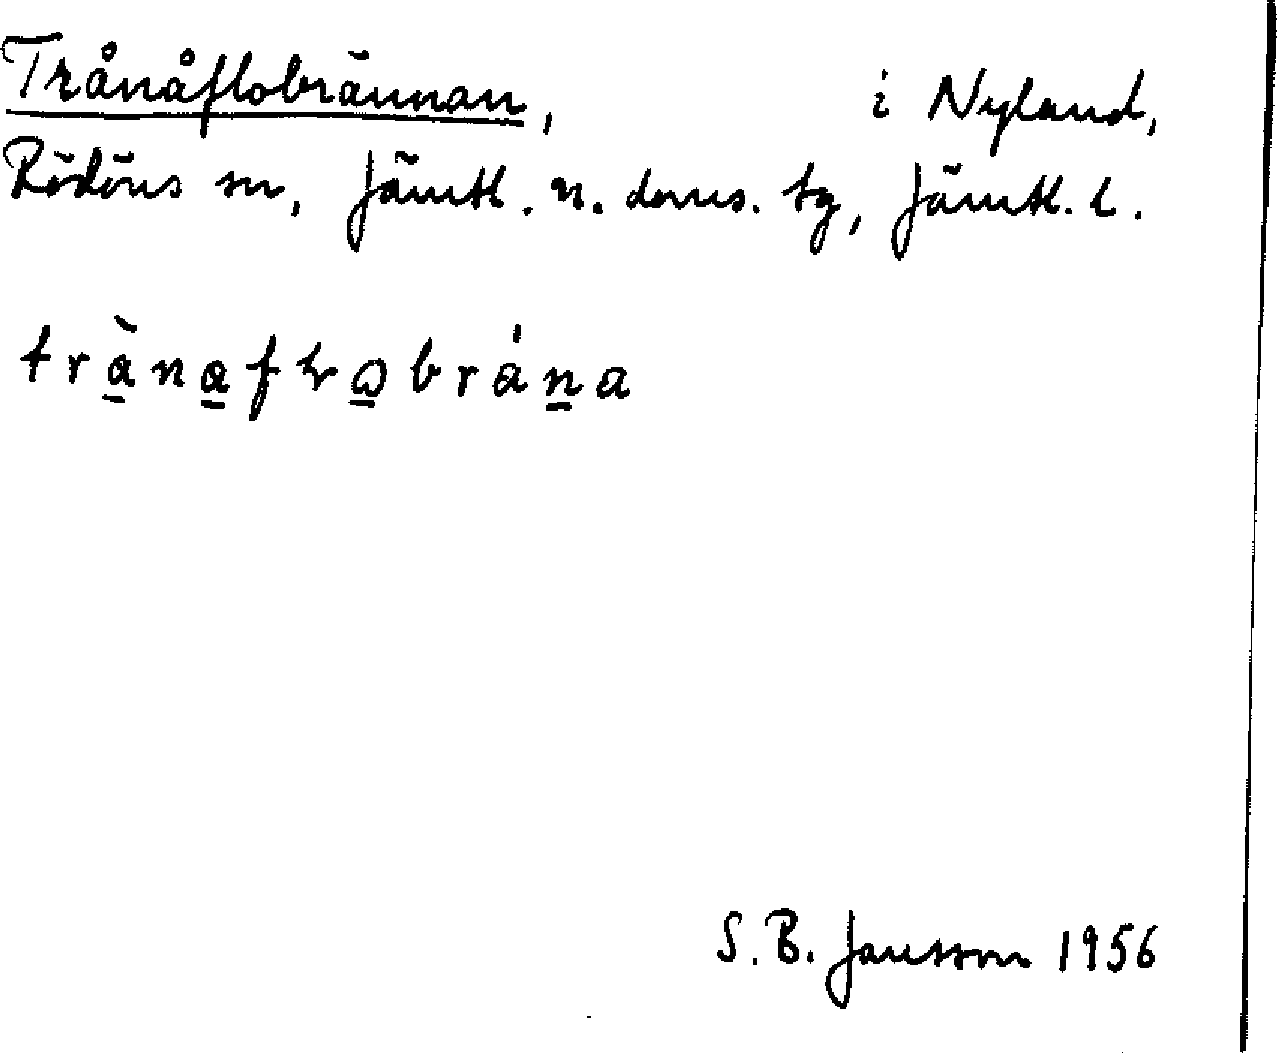 Trånåflobrännan, i Nyland,
Rödöns sn, Jämtl. n. doms. tg, Jämtl. l.
trànafɫobrána
S. B. Jansson 1956